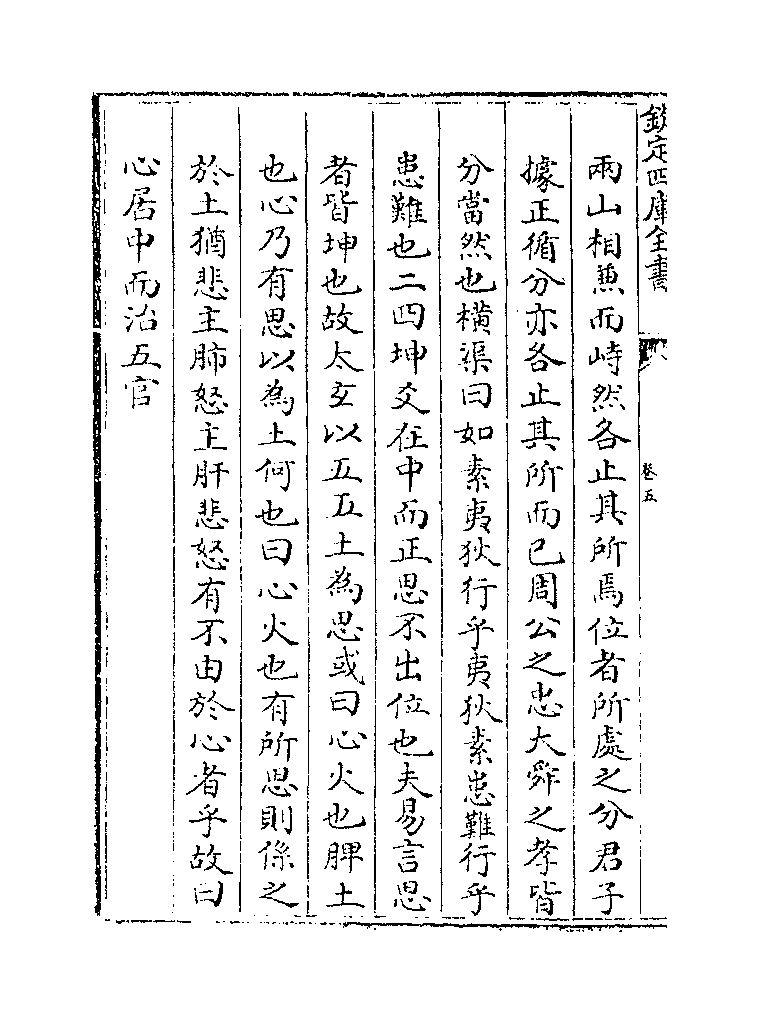 欽定四庫全書
卷五
兩山相兼而峙然各止其所焉位者所處之分君子
據正循分亦各止其所而已周公之忠大舜之孝皆
分當然也橫渠曰如素夷狄行乎夷狄素患難行乎
患難也二四坤爻在中而正思不出位也夫易言思
者皆坤也故太玄以五五土為思或曰心火也脾土
也心乃有思以為土何也曰心火也有所思則係之
於土猶悲主肺怒主肝悲怒有不由於心者乎故曰
心居中而治五官